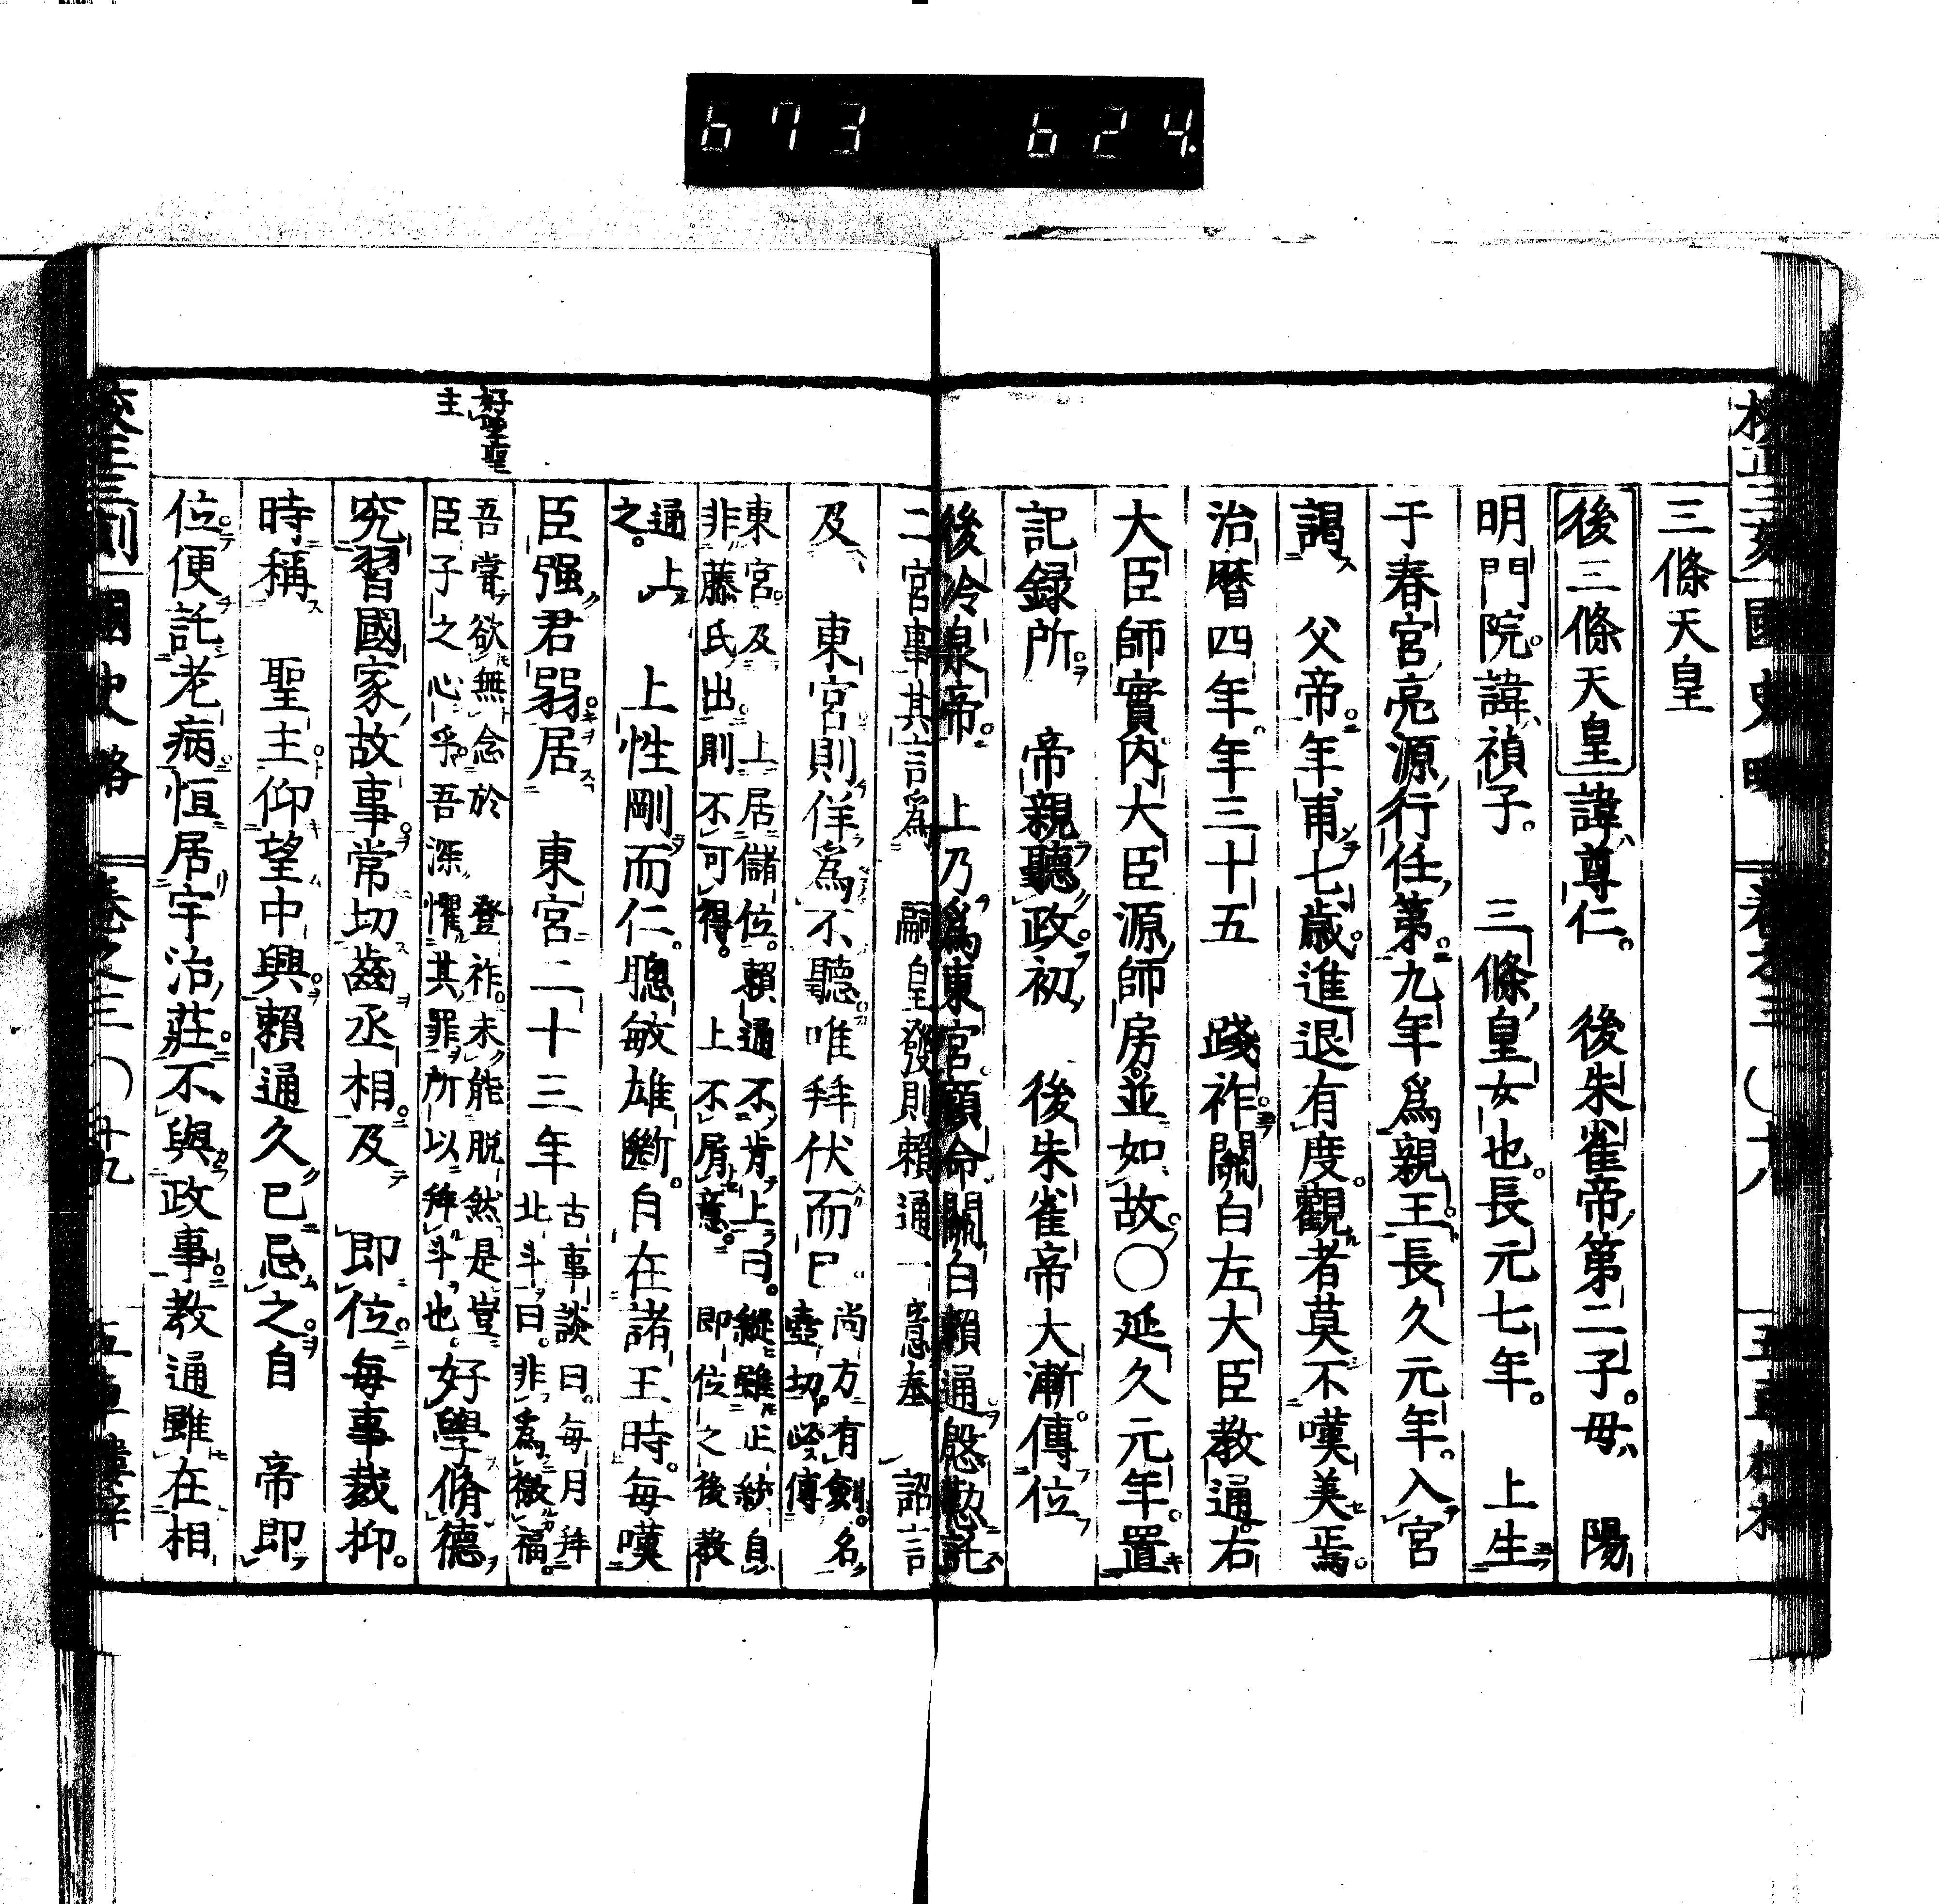 673 624.
校正三刻國史略 卷之三 〇十八 五車樓梓
三條天皇
後三條天皇諱尊仁。後朱雀帝第二子。母陽
明門院。諱禎子。三條皇女也。長元七年。上生
于春宮亮源行任第。九年爲親王。長久元年。入宮
謁父帝。年甫七歲。進退有度。觀者莫不嘆美焉。
治曆四年。年三十五踐祚。關白左大臣教通。右
大臣師實內大臣源師房。並如故。〇延久元年。置
記録所。帝親聽政。初後朱雀帝大漸。傳位
後冷泉帝。上乃爲東宮。顧命關白賴通。慇懃託
二宮事。其言爲嗣皇發。則賴通一意奉詔。言
及東宮。則佯爲不聽。唯拜伏而已。
尚方有劍。名
壺切。
傳
東宮。及上居儲位。賴通不肯上曰。縱雖止
非藤氏出。則不可得。上不屑意。即位之後教
通上
之。
上性剛而仁。聰敏雄斷。自在諸王時。每嘆
臣强君弱。居東宮二十三年
古事談曰。每月拜
北斗曰。非爲徼福。
吾嘗欲無念於登祚。未能脱然。是豈
臣子之心乎。吾深懼其罪。所以拜斗也。
好學脩德。
究習國家故事。常切齒丞相。及即位。每事裁抑。
時稱聖主。仰望中興。賴通久已忌之。自帝即
位。便託老病。恒居宇治莊。不與政事。教通雖在相
好學聖
主
校正三刻國史略 卷之三 〇十九 五車樓梓